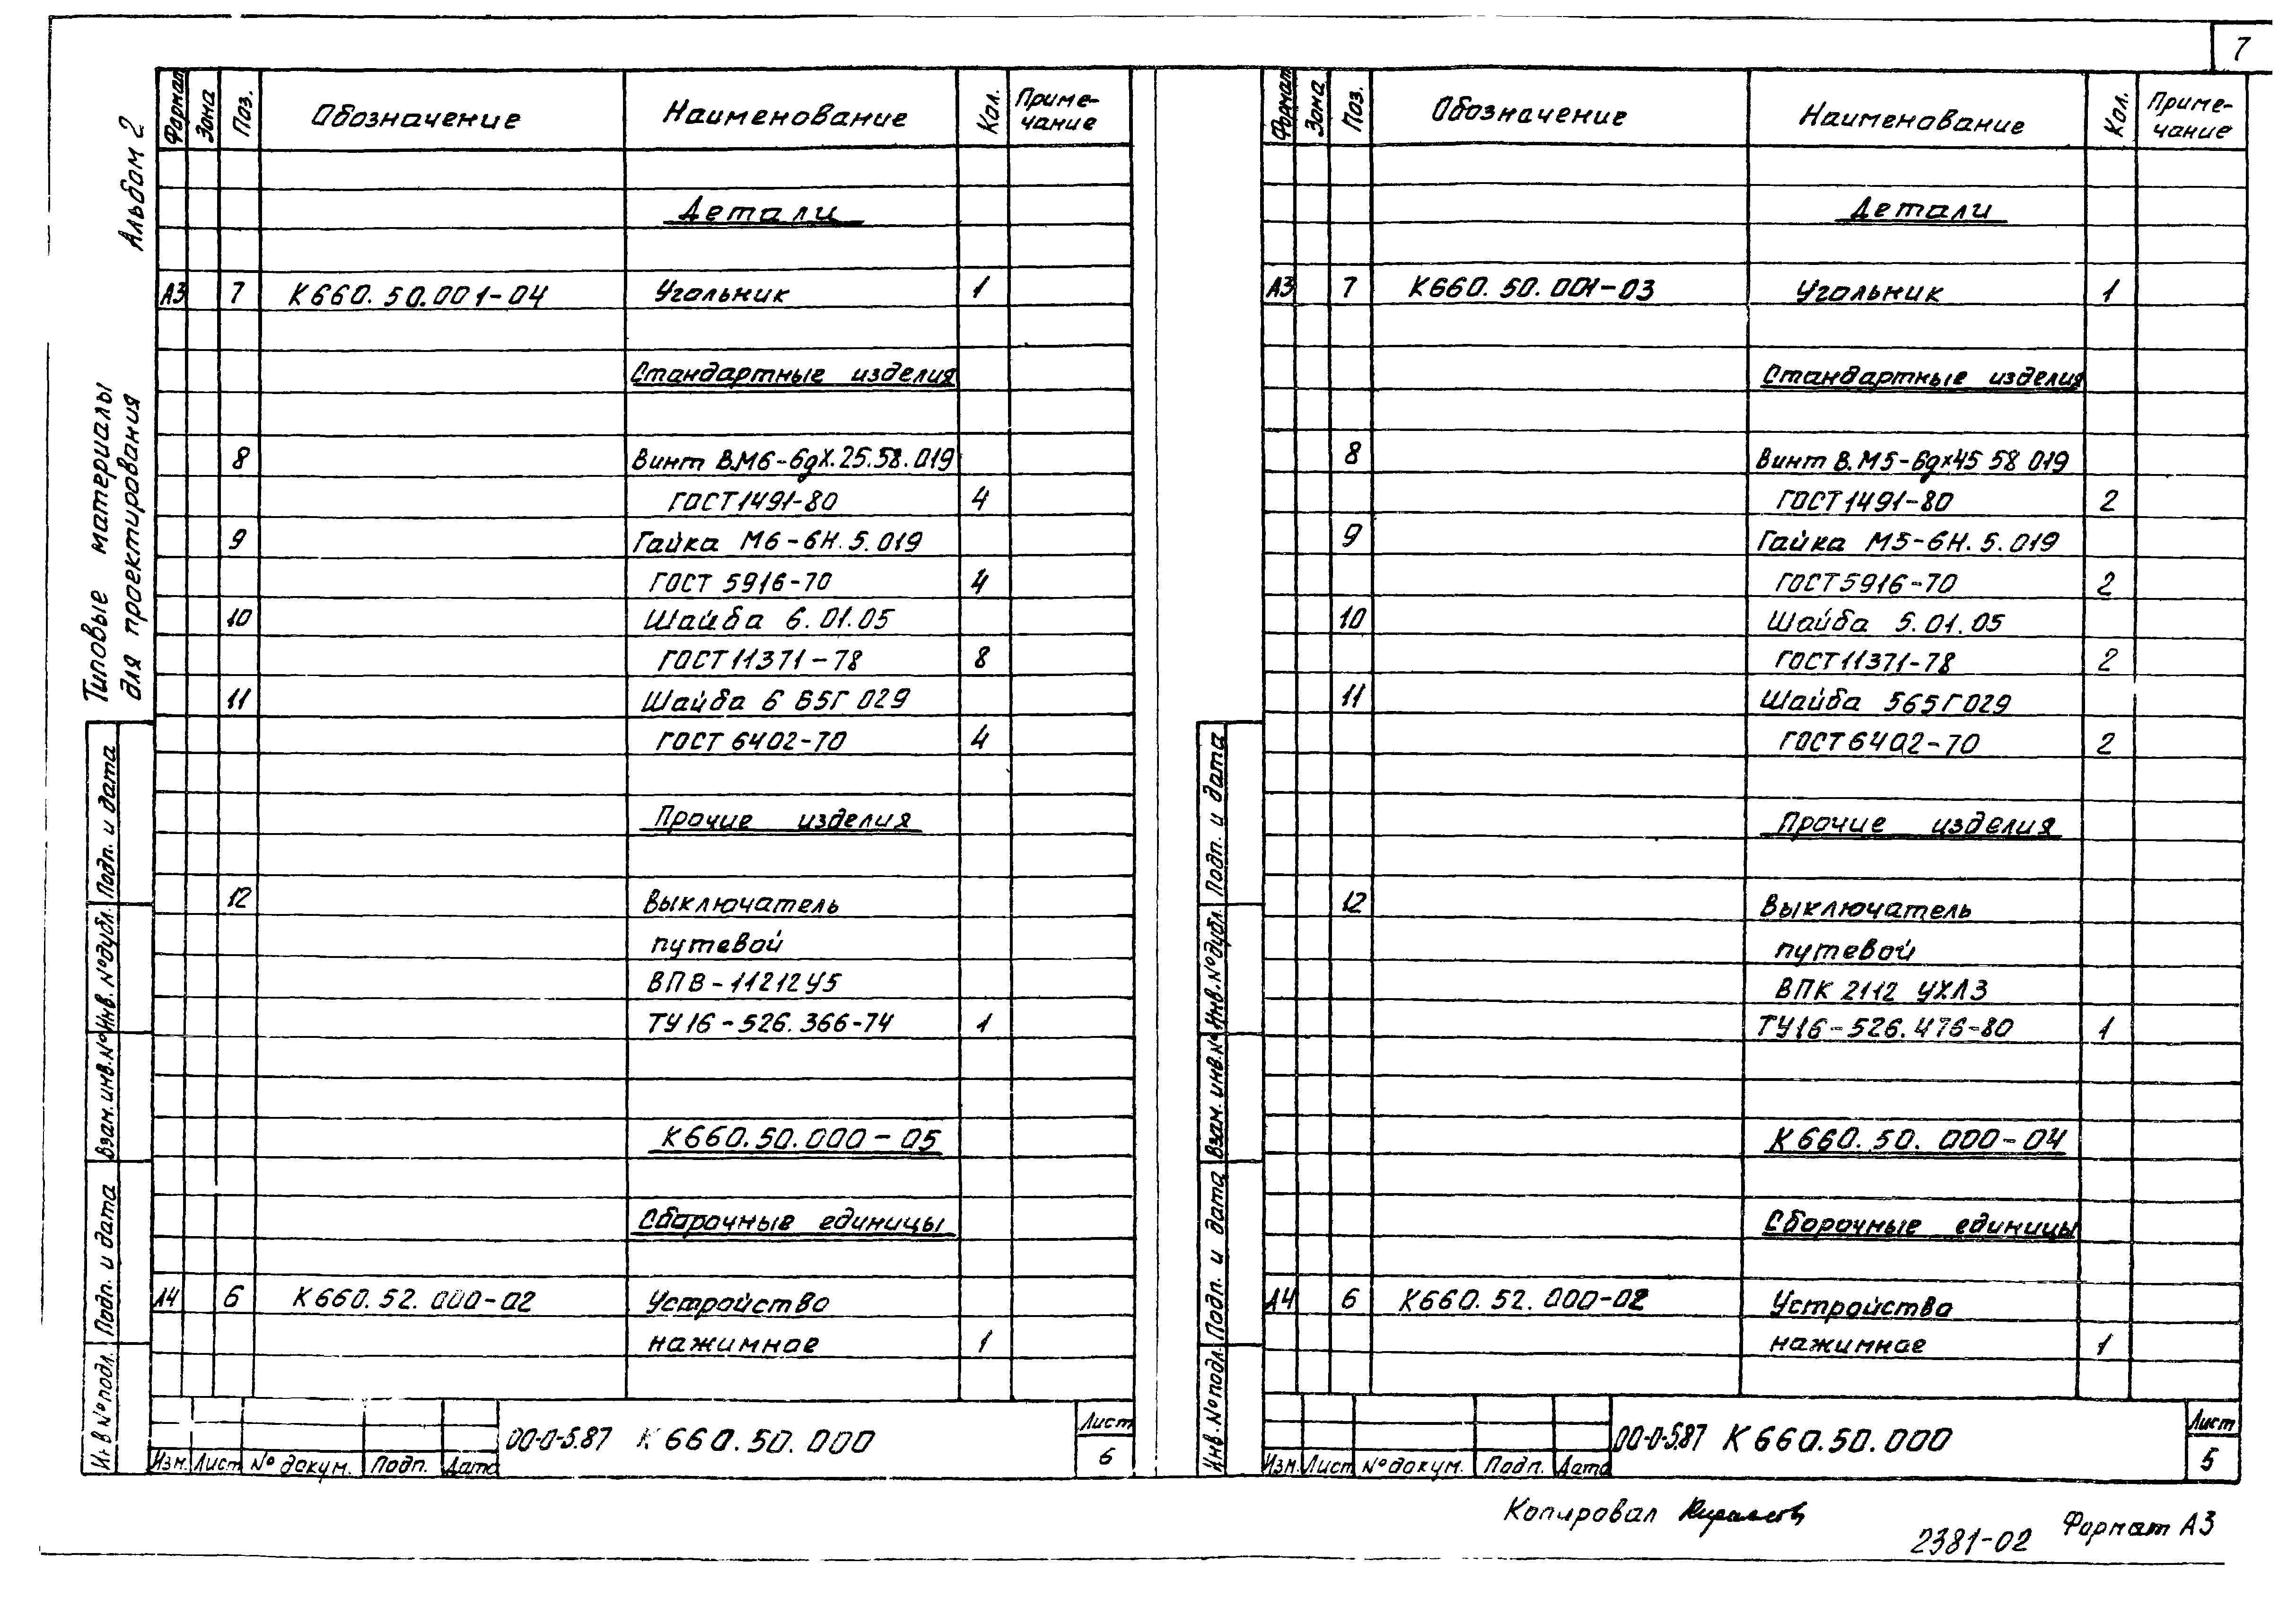 7
Альбом 2
Типовые материалы
для проектирования
Формат Зона Поз. Обозначение Наименование Кол. Приме-
чание
Детали
А3 7 К660.50.001-04 Угольник 1
Стандартные изделия
8 Винт В.М6-6gХ.25.58.019
ГОСТ 1491-80 4
9 Гайка М6-6Н.5.019
ГОСТ 5916-70 4
10 Шайба 6.01.05
ГОСТ 11371-78 8
11 Шайба 6 65Г 029
ГОСТ 6402-70 4
Прочие изделия
12 Выключатель
путевой
ВПВ-11212У5
ТУ16-526.366-74 1
К660.50.000-05
Сборочные единицы
А4 6 К660.52.000-02 Устройство
нажимное 1
Инв.№подл. Подп. и дата Взам.инв.№ Инв.№дубл. Подп. и дата
Изм. Лист № докум. Подп. Дата
00-0-5.87 К660.50.000
Лист
6
Формат Зона Поз. Обозначение Наименование Кол. Приме-
чание
Детали
А3 7 К660.50.001-03 Угольник 1
Стандартные изделия
8 Винт В.М5-6gх45 58 019
ГОСТ 1491-80 2
9 Гайка М5-6Н.5.019
ГОСТ 5916-70 2
10 Шайба 5.01.05
ГОСТ 11371-78 2
11 Шайба 565Г029
ГОСТ 6402-70 2
Прочие изделия
12 Выключатель
путевой
ВПК 2112 УХЛ3
ТУ16-526.476-80 1
К660.50.000-04
Сборочные единицы
А4 6 К660.52.000-02 Устройство
нажимное 1
Инв.№подл. Подп. и дата Взам.инв.№ Инв.№дубл. Подп. и дата
Изм. Лист № докум. Подп. Дата
00-0-5.87 К660.50.000
Лист
5
Копировал
2381-02
Формат А3